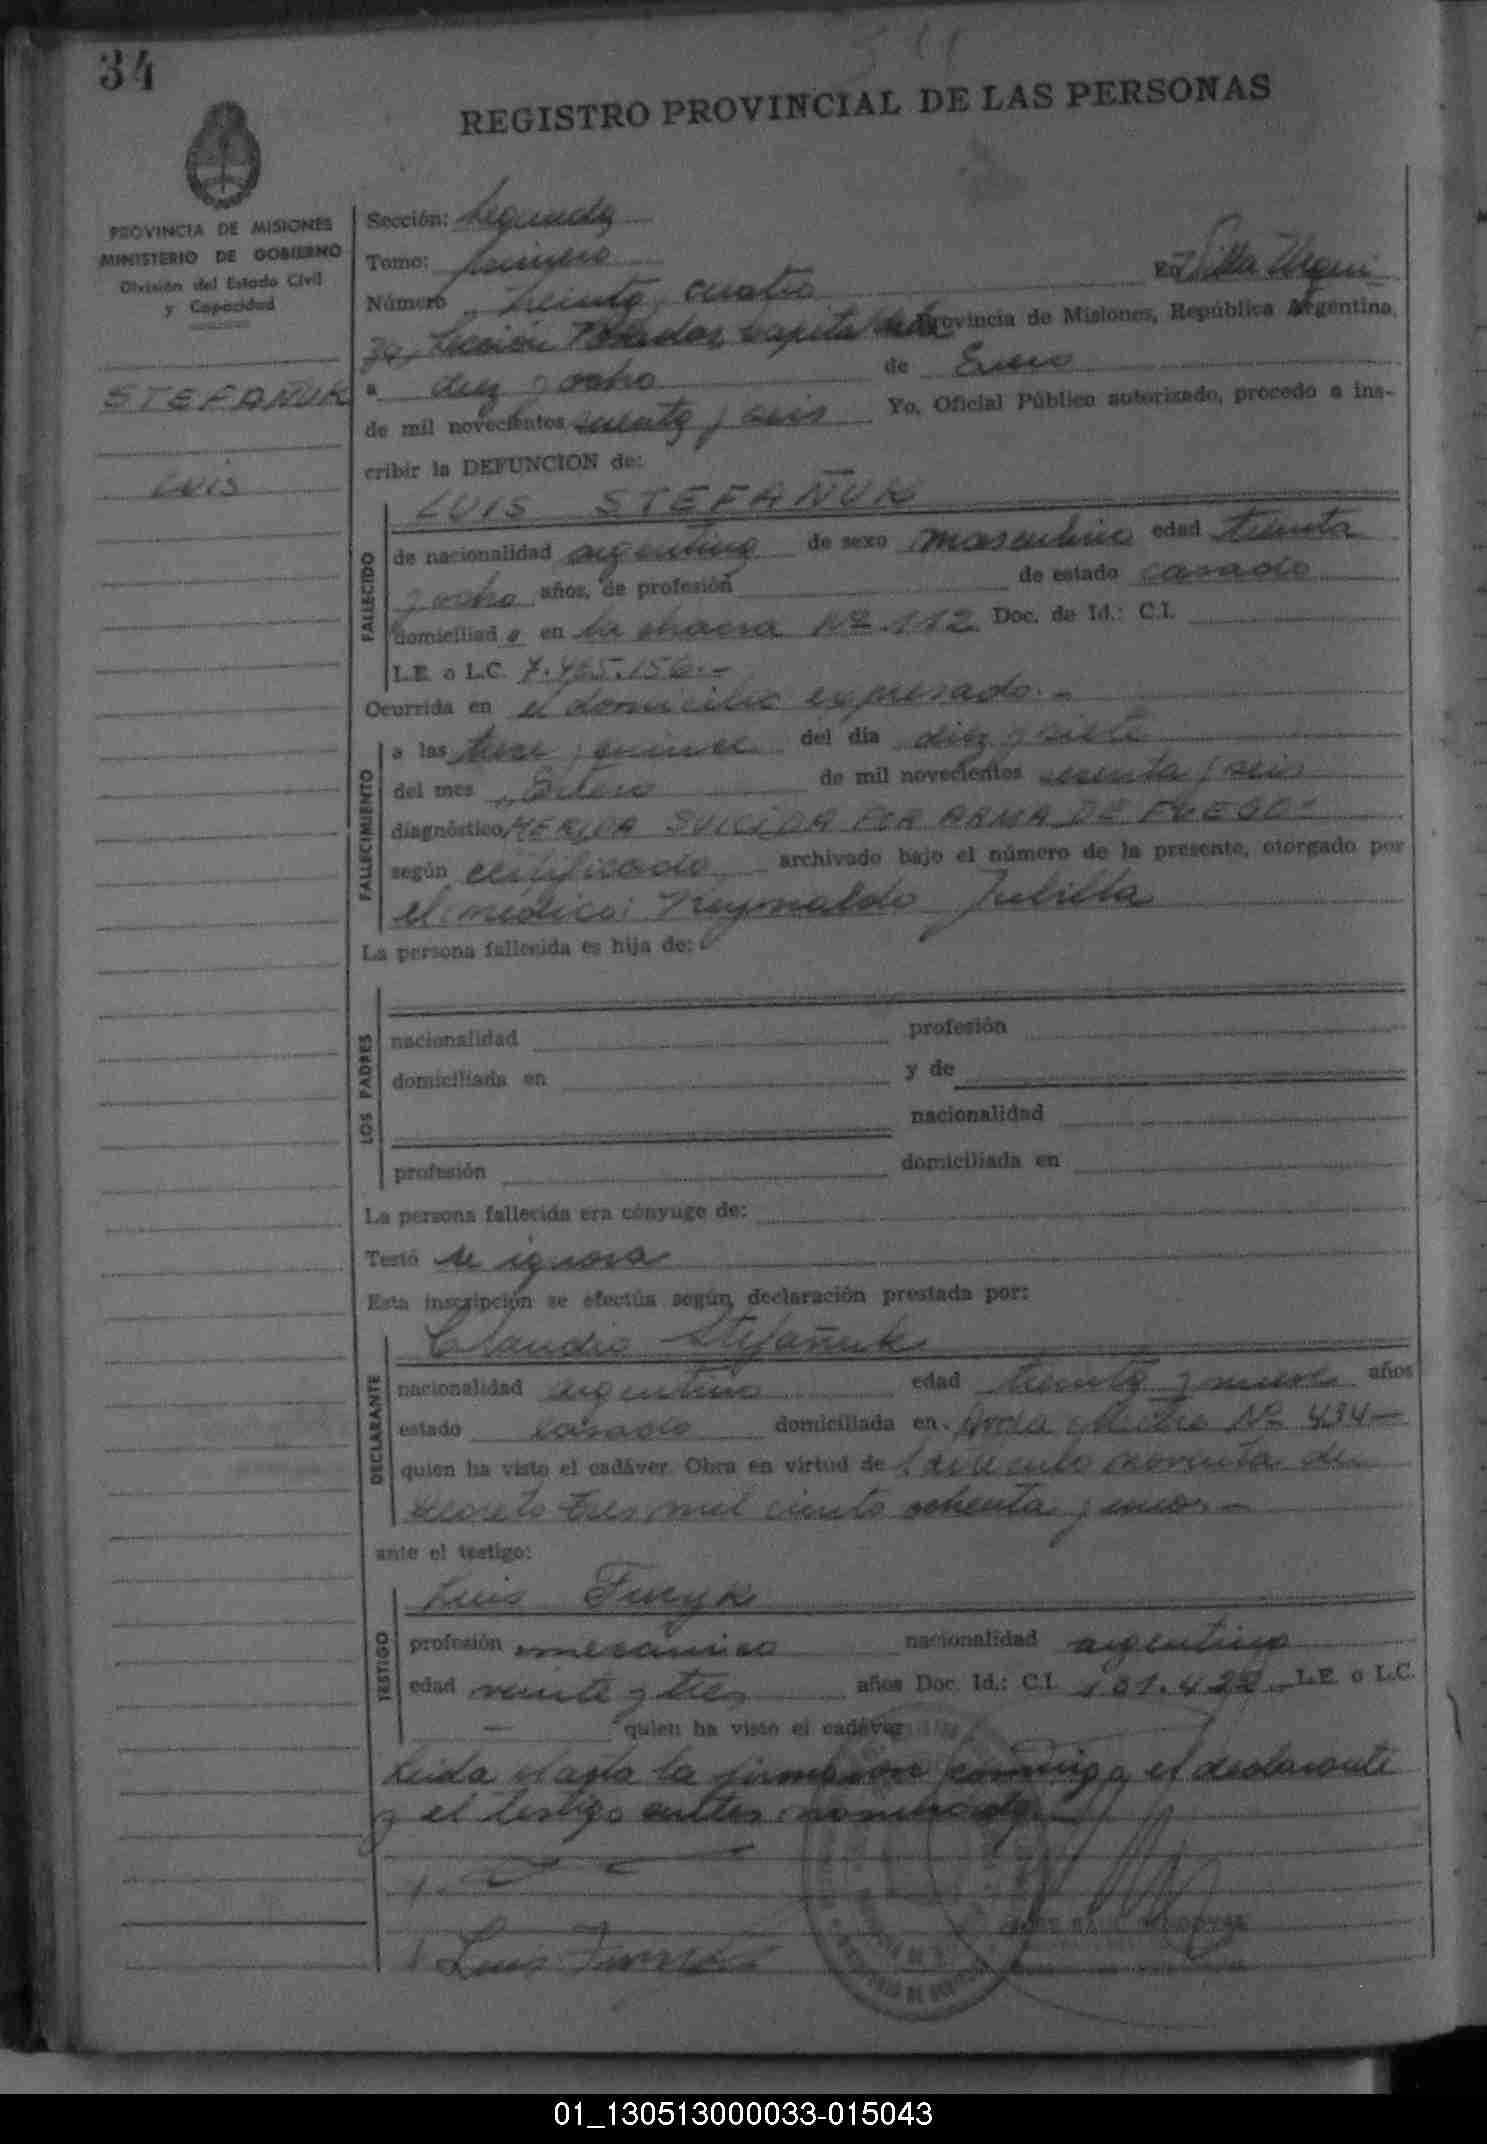 34
REGISTRO PROVINCIAL DE LAS PERSONAS
PROVINCIA DE MISIONES
MINISTERIO DE GOBIERNO
División del Estado Civil
y Capacidad
STEFAÑUK
LUIS
Sección: Segunda
Tomo: primero
Número treinta y cuatro En Villa Urqui
za, Sección Posadas, Capital de la Provincia de Misiones, República Argentina,
a diez y ocho de Enero
de mil novecientos setenta y seis Yo, Oficial Público autorizado, procedo a ins-
cribir la DEFUNCION de:
LUIS STEFAÑUK
FALLECIDO
de nacionalidad argentina de sexo masculino edad treinta
y ocho años, de profesión de estado casado
domiciliad o en la chacra Nº 112 Doc. de Id.: C.I.
L.E. o L.C. 7.465.156.-
Ocurrida en el domicilio expresado.-
FALLECIMIENTO
a las trece y quince del día diez y siete
del mes Enero de mil novecientos setenta y seis
diagnóstico HERIDA SUICIDA POR ARMA DE FUEGO-
según certificado archivado bajo el número de la presente, otorgado por
el médico: Reynaldo Julilla
La persona fallecida es hija de:
LOS PADRES
nacionalidad profesión
domiciliada en y de
nacionalidad
profesión domiciliada en
La persona fallecida era cónyuge de:
Testó se ignora
Esta inscripción se efectúa según declaración prestada por:
DECLARANTE
Claudio Stefañuk
nacionalidad argentino edad treinta y nueve años
estado casado domiciliada en Avda Mitre Nº 434-
quien ha visto el cadáver. Obra en virtud de artículo noventa del
decreto tres mil ciento ochenta y uno.-
ante el testigo:
TESTIGO
Luis Furyk
profesión mecánico nacionalidad argentino
edad veinte y tres años Doc. Id.: C.I. 131.422 L.E. o L.C.
- quien ha visto el cadáver
Leida el acta la firmaron conmigo el declarante
y el testigo antes nombrado.-
01_130513000033-015043